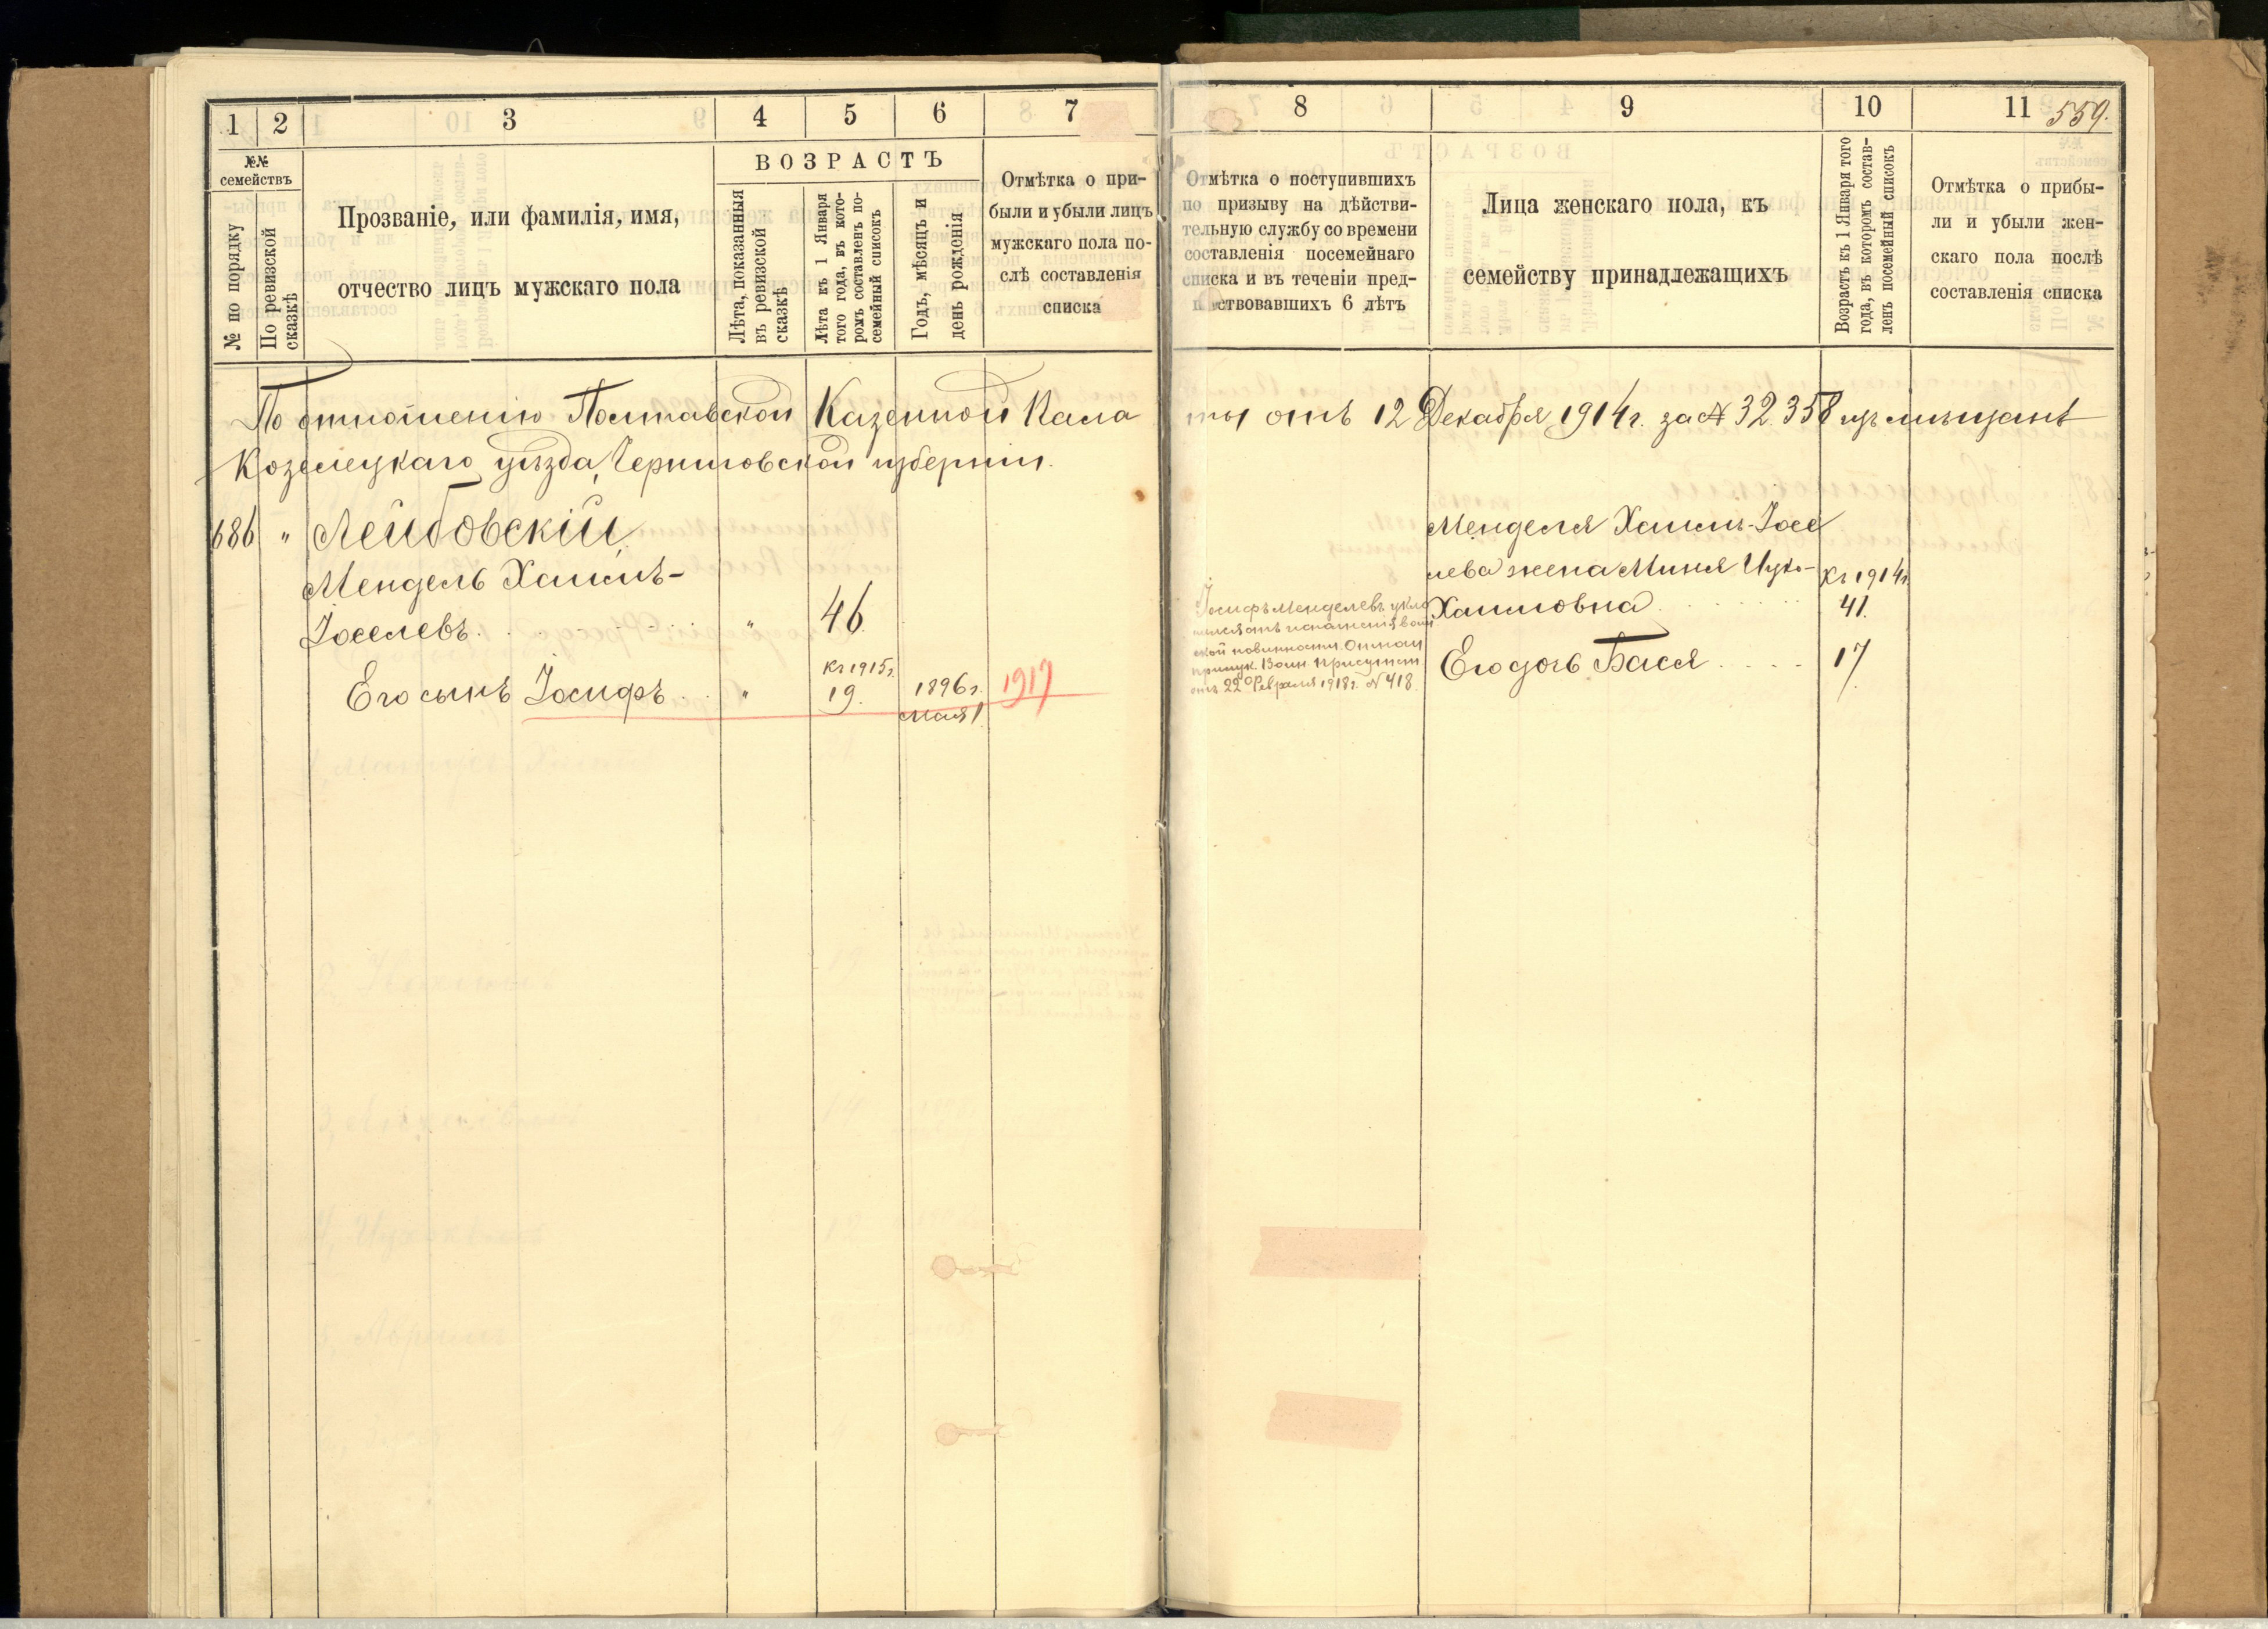 1
2
3
4
5
6
7
№№
семействъ
№ по порядку
По ревизской
сказкѣ
Прозваніе, или фамилія, имя,
отчество лицъ мужскаго пола
ВОЗРАСТЪ
Лѣта, показанныя
въ ревизской
сказкѣ
Лѣта къ 1 Января
того года, въ кото-
ромъ составленъ по-
семейный списокъ
Годъ, мѣсяцъ и
день рожденія
Отмѣтка о при-
были и убыли лицъ
мужскаго пола по-
слѣ составленія
списка
По отношенію Полтавской Казенной Пала
Козелецкаго уѣзда, Черниговской губерніи.
686 " Лейбовскій
Мендель Хаимъ-
Іоселевъ. " 46
Къ 1915г.
Его сынъ Іосифъ " 19. 1896г. 1917
мая 1
8
9
10
11
559.
Отмѣтка о поступившихъ
по призыву на дѣйстви-
тельную службу со времени
составленія посемейнаго
списка и въ теченіи пред-
ствовавшихъ 6 лѣтъ
Лица женскаго пола, къ
семейству принадлежащихъ
Возрастъ къ 1 Января того
года, въ которомъ состав-
ленъ посемейный списокъ
Отмѣтка о прибы-
ли и убыли жен-
скаго пола послѣ
составленія списка
ты отъ 12 Декабря 1914г. за № 32.358 изъ мѣщанъ
Менделя Хаимъ-Іосе
лева жена Миня Ицко- Къ 1914г.
Хаимовна 41.
Его дочь Бася 17
Іосифъ Менделевъ укло
отъ воин
ской повинности.
Воин. Присутст.
отъ 22 Февраля 1918г. № 418.